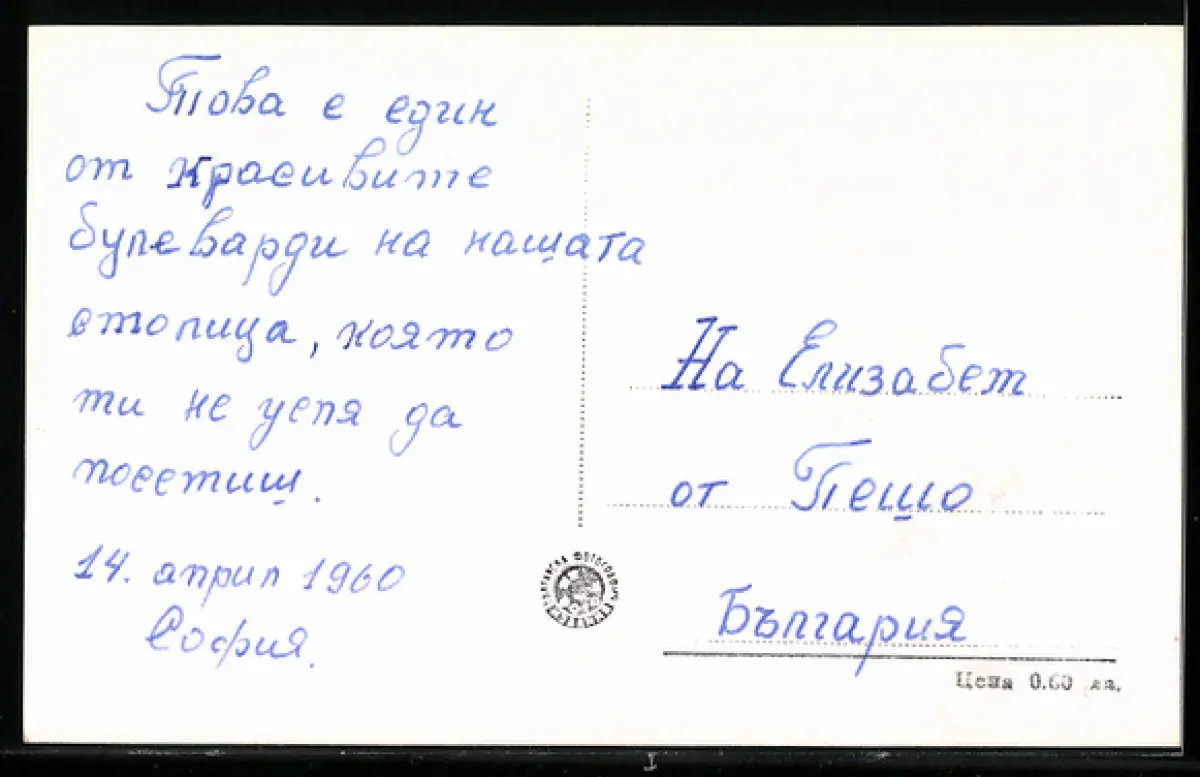 Това е един
от красивите
булеварди на нашата
столица, която
ти не успя да
посетиш.
14. април 1960
София.
На Елизабет
от Пешо
България
Цена 0.60 лв.